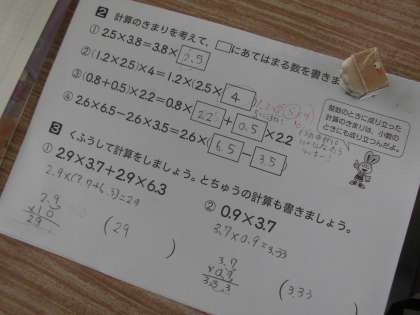 2 計算のきまりを考えて、□にあてはまる数を書きま
① 2.5×3.8=3.8×2.5
② (1.2×2.5)×4=1.2×(2.5×4)
③ (0.8+0.5)×2.2=0.8×2.2+0.5×2.2
④ 2.6×6.5-2.6×3.5=2.6×(6.5-3.5)
整数のときに成り立った
計算のきまりは、小数の
ときにも成り立つんだよ。
3 くふうして計算をしましょう。とちゅうの計算も書きましょう。
① 2.9×3.7+2.9×6.3
2.9×(3.7+6.3)=29
2.9
×10
29
(29)
② 0.9×3.7
3.7×0.9=3.33
3.7
×0.9
3.3.3
(3.33)